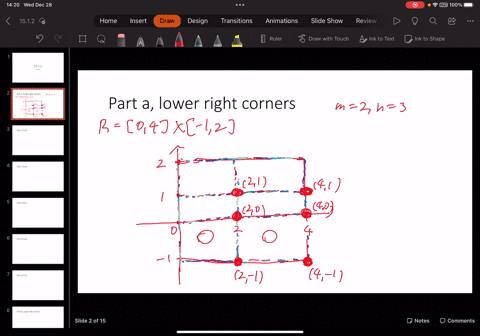 14:20 Wed Dec 28
100%
15.1.2
Home Insert Draw Design Transitions Animations Slide Show Review
Ruler Draw with Touch Ink to Text Ink to Shape
1
2
3
4
5
6
7
8
Part a, lower right corners
m=2, n=3
R = [0,4] X [-1,2]
2
1 (2,1) (4,1)
(2,0) (4,0)
0 2 4
-1
(2,-1) (4,-1)
Slide 2 of 15
Notes Comments